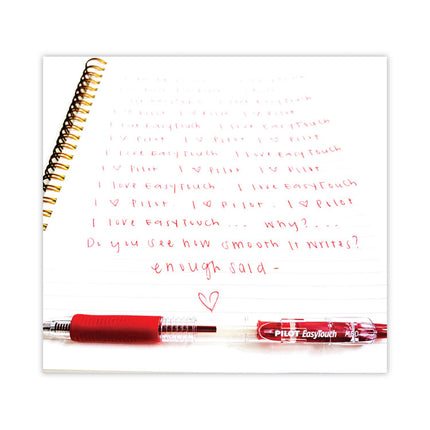 I love EasyTouch I love EasyTouch
I ♡ Pilot I ♡ Pilot I ♡ Pilot
I love EasyTouch I love EasyTouch
I ♡ Pilot I ♡ Pilot I ♡ Pilot
I love EasyTouch. I love EasyTouch
I ♡ Pilot I ♡ Pilot. I ♡ Pilot
I love EasyTouch... why?...
Do you see how smooth it writes?
enough said -
♡
PILOT EasyTouch